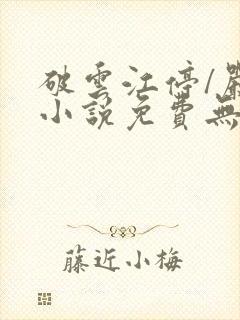 破雲江停/嚴
小說免費無
藤近小梅